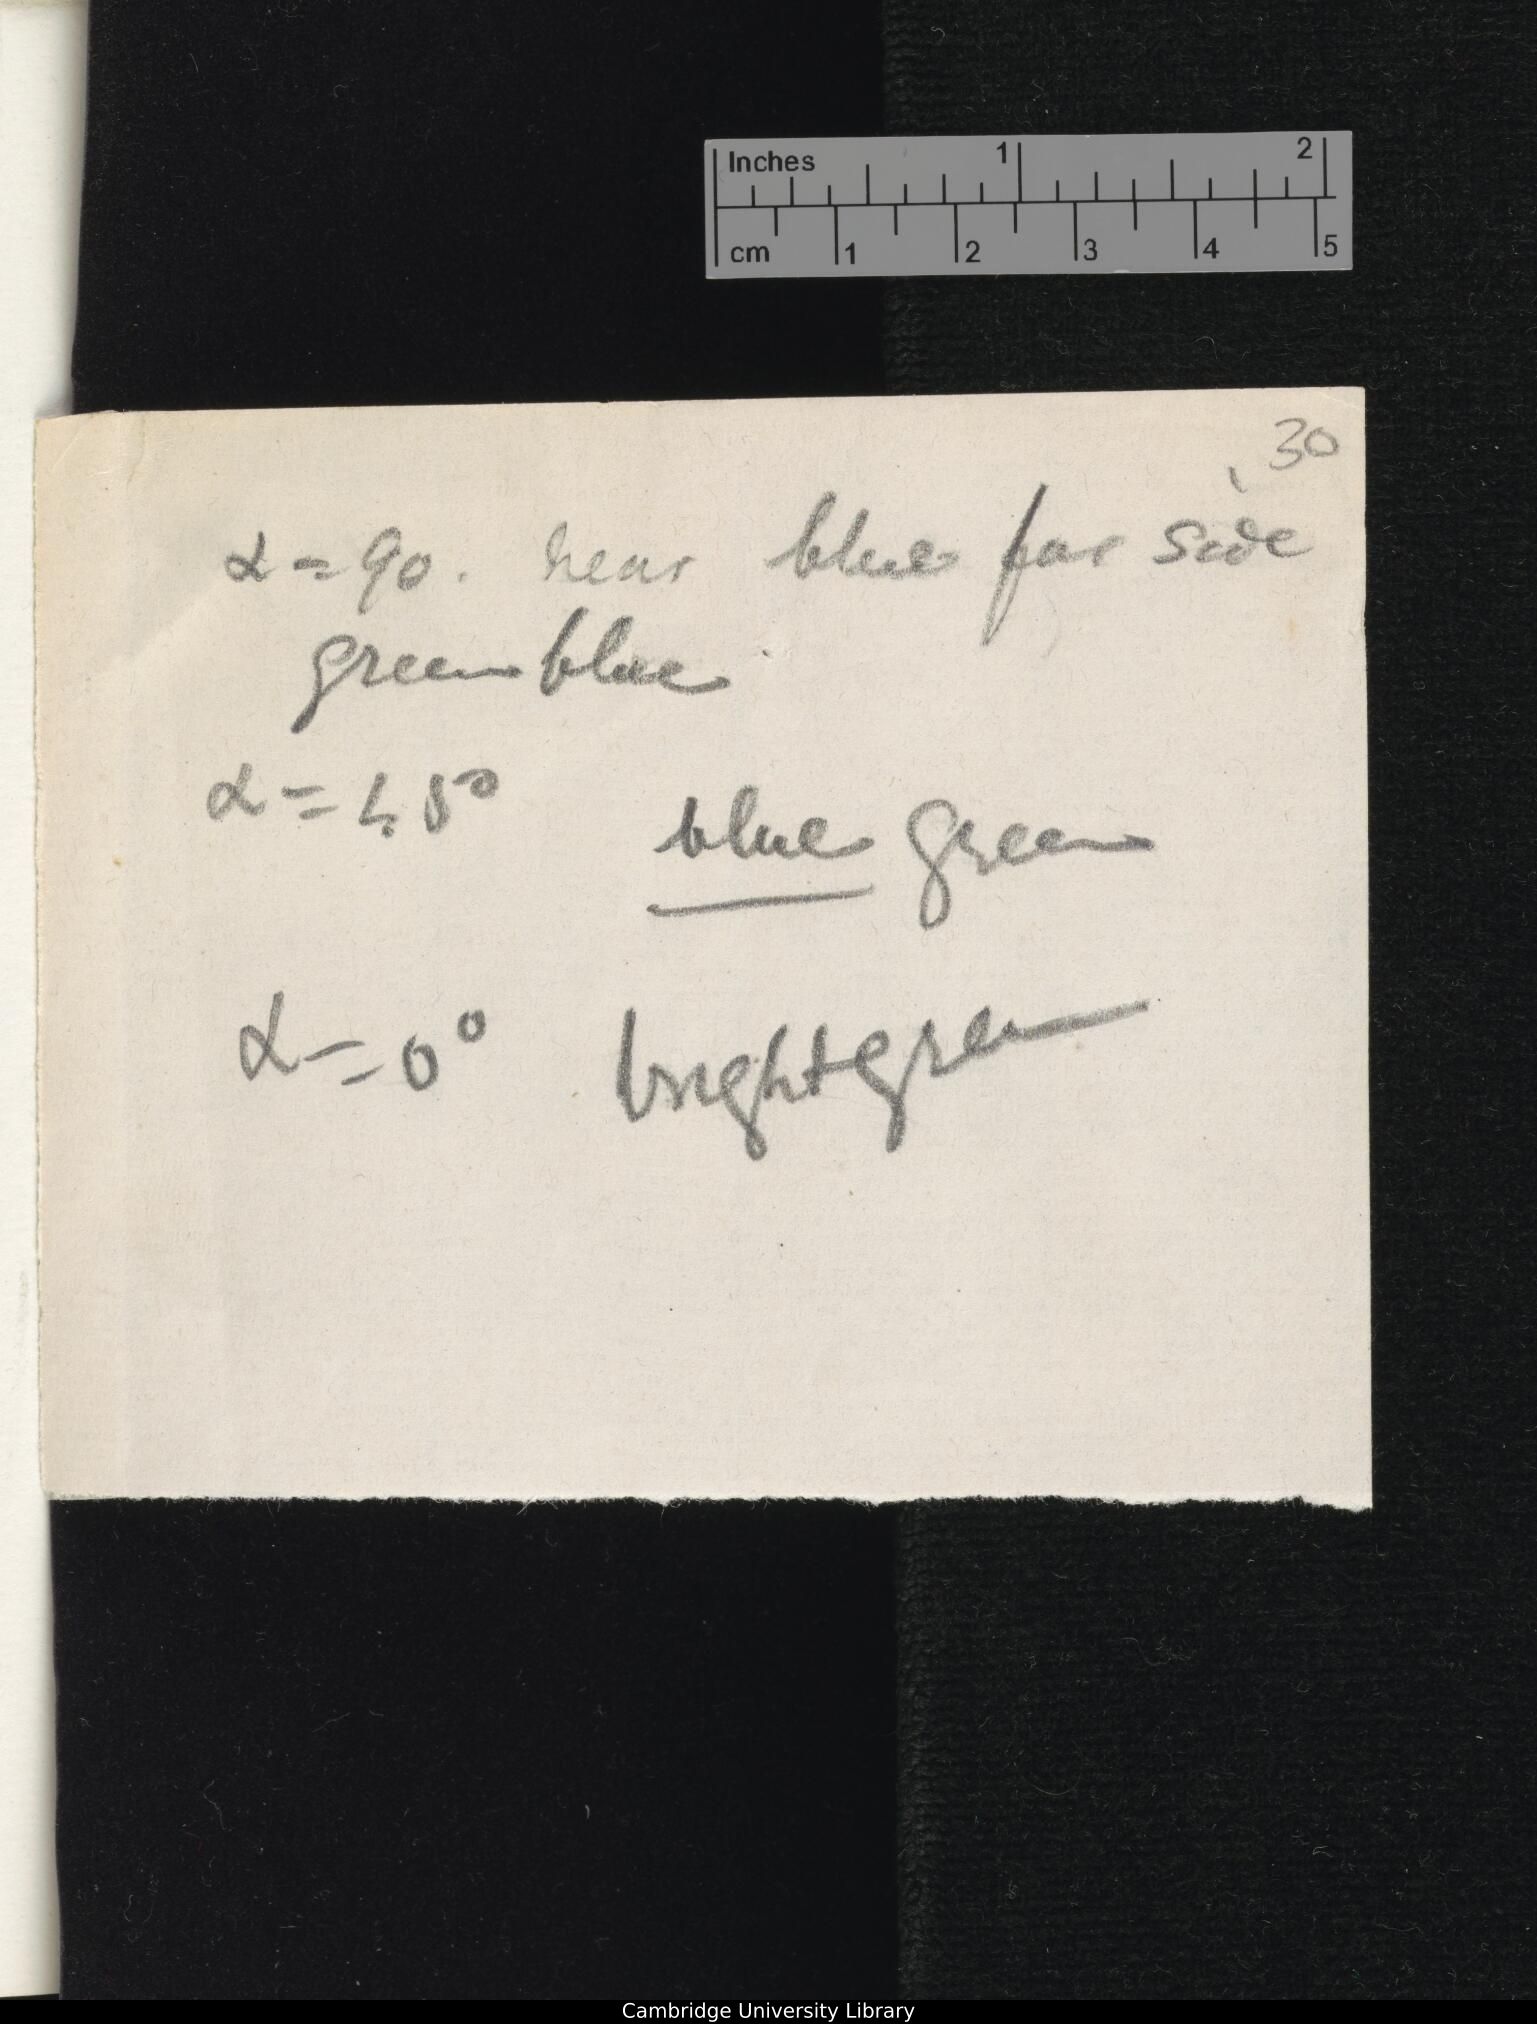 Inches 1 2
cm 1 2 3 4 5
30
α = 90. near blue far side
green blue
α = 45°
blue green
α = 0° bright green
Cambridge University Library